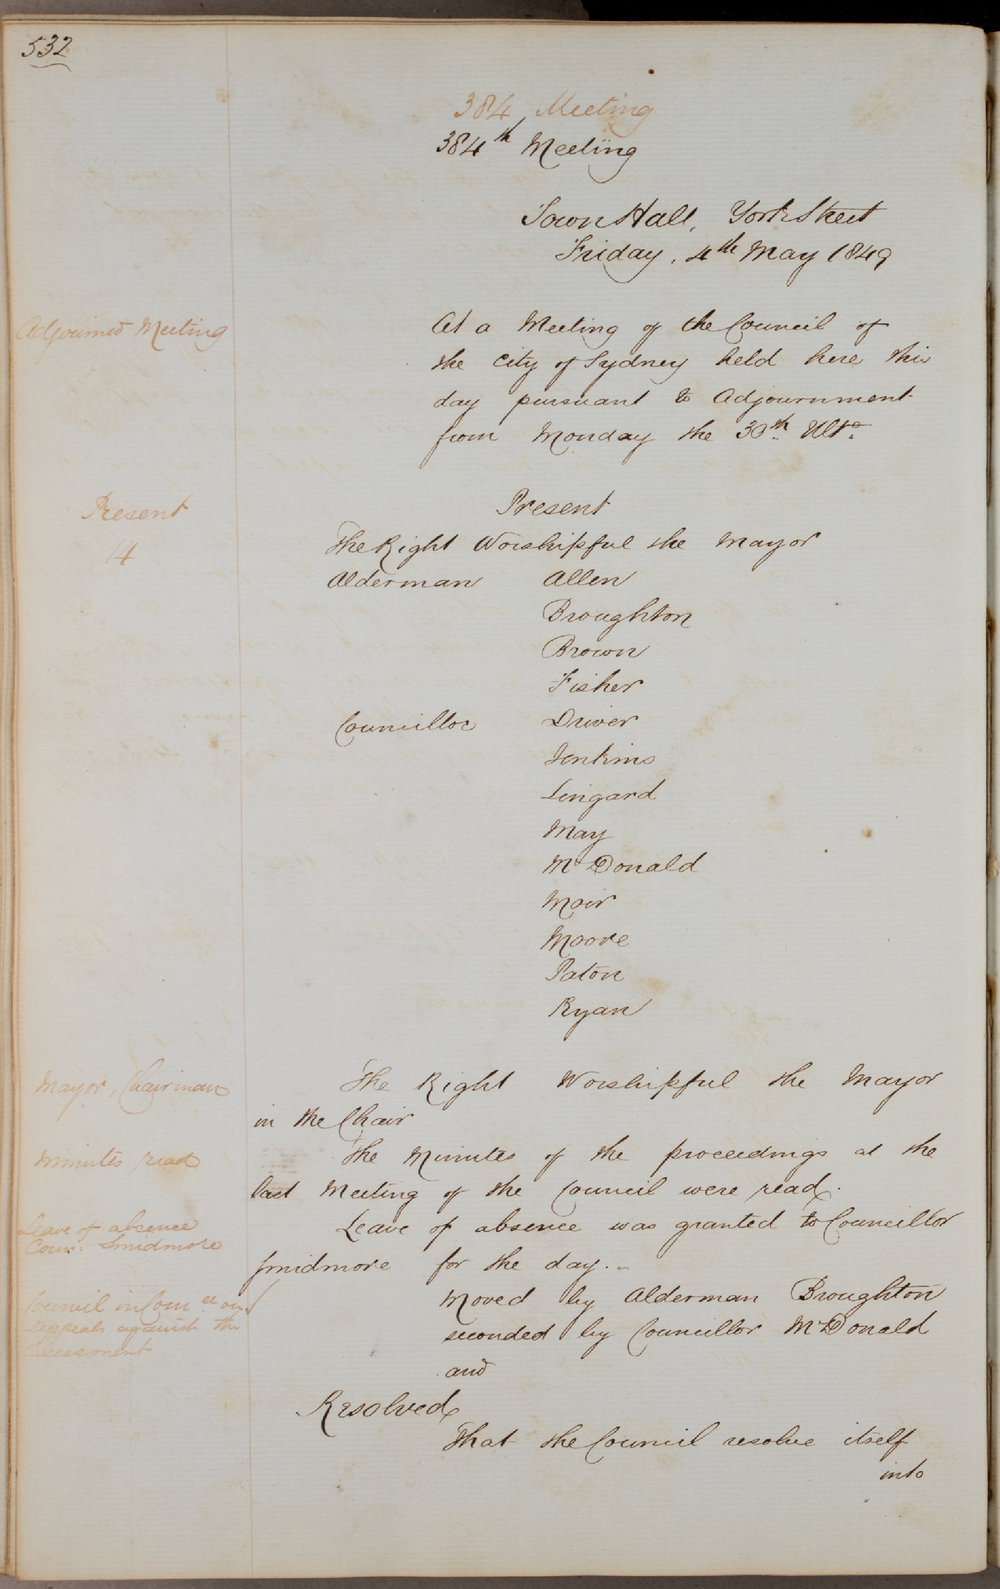 532
384 Meeting
384th Meeting
Town Hall, York Street
Friday, 4th May 1849
Adjourned Meeting
At a Meeting of the Council of
the City of Sydney held here this
day pursuant to Adjournment
from Monday the 30th Ulto.
Present
14
Present
The Right Worshipful the Mayor
Alderman Allen
Broughton
Brown
Fisher
Councillor Driver
Jenkins
Lingard
May
McDonald
Moir
Moore
Paton
Ryan
Mayor, Chairman
The Right Worshipful the Mayor
in the Chair
Minutes read
The Minutes of the proceedings at the
last Meeting of the Council were read.
Leave of absence
Coun. Smidmore
Leave of absence was granted to Councillor
Smidmore for the day.
Council in Comee on
Appeals against the
Assessment
Moved by Alderman Broughton
seconded by Councillor McDonald
and
Resolved
That the Council resolve itself
into